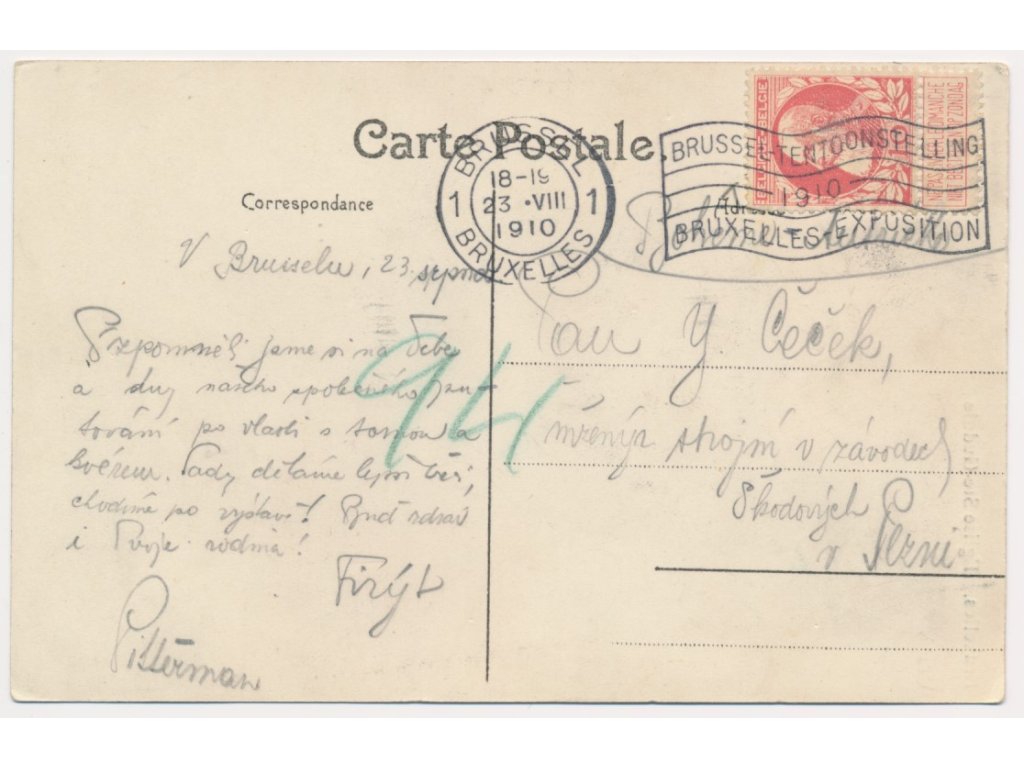 Carte Postale.
BRUSSEL
18-19
1 23 ·VIII 1
1910
BRUXELLES
BRUSSEL-TENTOONSTELLING
1910
BRUXELLES-EXPOSITION
BELGIQUE-BELGIE
NE PAS LIVRER LE DIMANCHE
NIET BESTELLEN OP ZONDAG
Correspondance
V Bruselu, 23. srpna
Vzpomněli jsme si na Tebe
a dny našeho společného
tování po vlasti s
Tady děláme
chodíme po výstavě! Buď zdráv
i Tvoje rodina!
Pittērman
94
Pan Y. Čeček,
strojní v závodech
Škodových
v Plzni